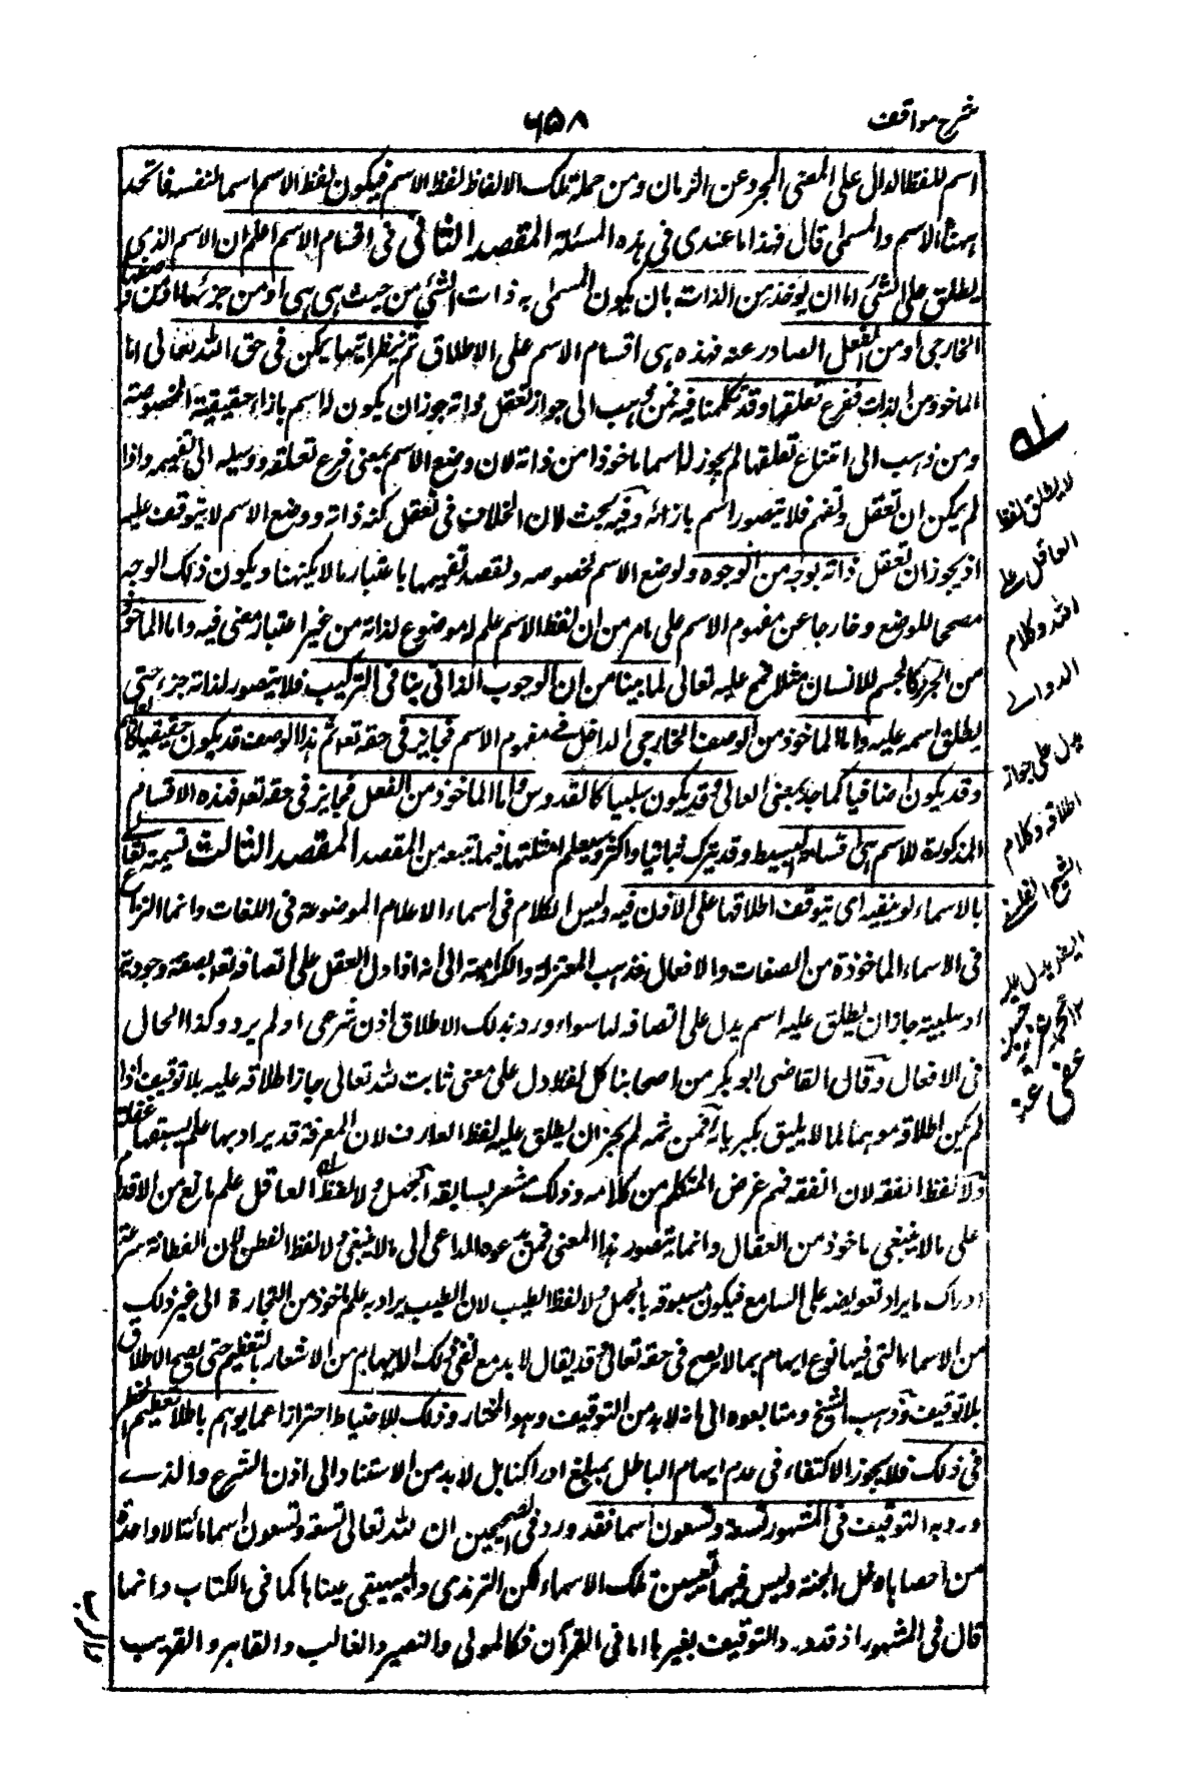 شرح مواقف
۶۵۸
اسم للفظ الدال على المعنى المجرد عن الزمان ومن جملة تلك الالفاظ لفظ الاسم فيكون لفظ الاسم اسما لنفسه فاتحد
ههنا الاسم والمسمى قال فهذا ما عندى فى هذه المسئلة المقصد الثانى فى اقسام الاسم اعلم ان الاسم الذى
يطلق على الشئ اما ان يوخذ من الذات بان يكون المسمى به ذات الشئ من حيث هى هى او من جزئها او من وصفها
الخارجى او من الفعل الصادر عنه فهذه هى اقسام الاسم على الاطلاق ثم ننظر ايها يمكن فى حق الله تعالى اما
الماخوذ من الذات ففرع تعلقها وقد تكلمنا فيه فمن ذهب الى جواز تعقل ذاته جوز ان يكون له اسم بازاء حقيقته المخصوصة
ومن ذهب الى امتناع تعلقها لم يجوز له اسما ماخوذا من ذاته لان وضع الاسم بمعنى فرع تعلقه ووسيلة الى تفهيمه واذا
لم يمكن ان تعقل وتفهم فلا يتصور اسم بازائه وفيه بحث لان الخلاف فى تعقل كنه ذاته ووضع الاسم لا يتوقف عليه
اذ يجوز ان تعقل ذاته بوجه من الوجوه ويوضع الاسم لخصوصه ويقصد تفهيمها باعتبار ما لا بكنهها ويكون ذلك الوجه
مصححا للوضع وخارجا عن مفهوم الاسم على ما مر من ان لفظ الاسم علم له موضوع لذاته من غير اعتبار معنى فيه واما الماخوذ
من الجزء كالجسم للانسان مثلا فمح عليه تعالى لما بينا من ان الوجوب الذاتى ينافى التركيب فلا يتصور لذاته جزء حتى
يطلق اسمه عليه واما الماخوذ من الوصف الخارجى الداخل فى مفهوم الاسم فجايز فى حقه تعالى ثم هذا الوصف قد يكون حقيقيا كالعليم
وقد يكون اضافيا كماجد بمعنى العالى وقد يكون سلبيا كالقدوس واما الماخوذ من الفعل فجايز فى حقه تعالى فهذه الاقسام
المذكورة للاسم هى اقسامه البسيطة وقد يتركب ثنائيا واكثر وسيعلم امثلتها فيما يتبعه من المقصد المقصد الثالث تسميته تعالى
بالاسماء توقيفية اى يتوقف اطلاقها على الاذن فيه وليس الكلام فى اسماء الاعلام الموضوعة فى اللغات وانما النزاع
فى الاسماء الماخوذة من الصفات والافعال فذهب المعتزلة والكرامية الى انه اذا دل العقل على اتصافه تعالى بصفة وجودية
او سلبية جاز ان يطلق عليه اسم يدل على اتصافه بها سواء ورد بذلك الاطلاق اذن شرعى او لم يرد وكذا الحال
فى الافعال وقال القاضى ابو بكر من اصحابنا كل لفظ دل على معنى ثابت لله تعالى جاز اطلاقه عليه بلا توقيف اذا
لم يكن اطلاقه موهما لما لا يليق بكبريائه فمن ثمه لم يجز ان يطلق عليه لفظ العارف لان المعرفة قد يراد بها علم يسبقه غفلة
ولا لفظ الفقه لان الفقه فهم غرض المتكلم من كلامه وذلك مشعر بسابقه الجهل ولا لفظ العاقل لان العقل علم مانع من الاقدام
على ما لا ينبغى ماخوذ من العقال وانما يتصور هذا المعنى فيمن يدعوه الداعى الى ما لا ينبغى ولا لفظ الفطن لان الفطانة سرعة
ادراك ما يراد تعويضه على السامع فيكون مسبوقه بالجهل ولا لفظ الطبيب لان الطبيب يراد به علم ماخوذ من التجارة الى غير ذلك
من الاسماء التى فيها نوع ايهام بما لا يصح فى حقه تعالى وقد يقال لا بد مع نفى ذلك الايهام من الاشعار بالتعظيم حتى يصح الاطلاق
بلا توقيف وذهب الشيخ ومتابعوه الى انه لا بد من التوقيف وهو المختار وذلك للاحتياط احترازا عما يوهم باطلا لعظيم الخطر
فى ذلك فلا يجوز الاكتفاء فى عدم ايهام الباطل بمبلغ ادراكنا بل لا بد من الاستناد الى اذن الشرع والذى
ورد به التوقيف فى المشهور تسعة وتسعون اسما فقد ورد فى الصحيحين ان لله تعالى تسعة وتسعون اسما مائة الا واحدة
من احصاها دخل الجنة وليس فيهما تعيين تلك الاسماء لكن الترمذى والبيهقى عيناها كما فى الكتاب وانما
قال فى المشهور اذ قد ورد التوقيف بغيرها اما فى القرآن فكالمولى والنصير والغالب والقاهر والقريب
له
لا يطلق لفظ
العاقل على
الله وكلام
الدوانى
يدل على جواز
اطلاقه وكلام
الشيخ
ايضر يدل عليه
عفى عنه